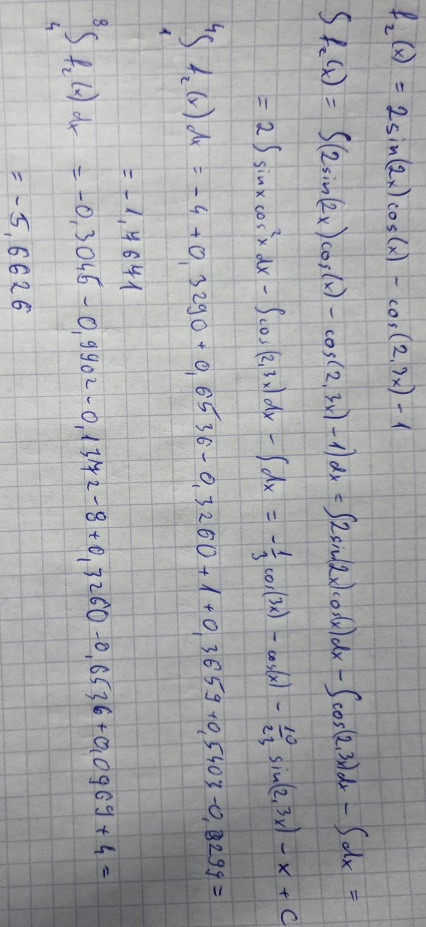 f₂(x) = 2sin(2x)cos(x) - cos(2,3x) - 1
∫ f₂(x) = ∫(2sin(2x)cos(x) - cos(2,3x) - 1)dx = ∫2sin(2x)cos(x)dx - ∫cos(2,3x)dx - ∫dx =
= 2∫ sinx cos²x dx - ∫cos(2,3x)dx - ∫dx = -1/3 cos(3x) - cos(x) - 10/23 sin(2,3x) - x + C
₁⁴∫ f₂(x)dx = -4 + 0,3290 + 0,6536 - 0,3260 + 1 + 0,3659 + 0,5403 - 0,3299 =
= -1,7641
₄⁸∫ f₂(x)dx = -0,3046 - 0,9902 - 0,13742 - 8 + 0,3260 - 0,6536 + 0,0969 + 4 =
= -5,6626